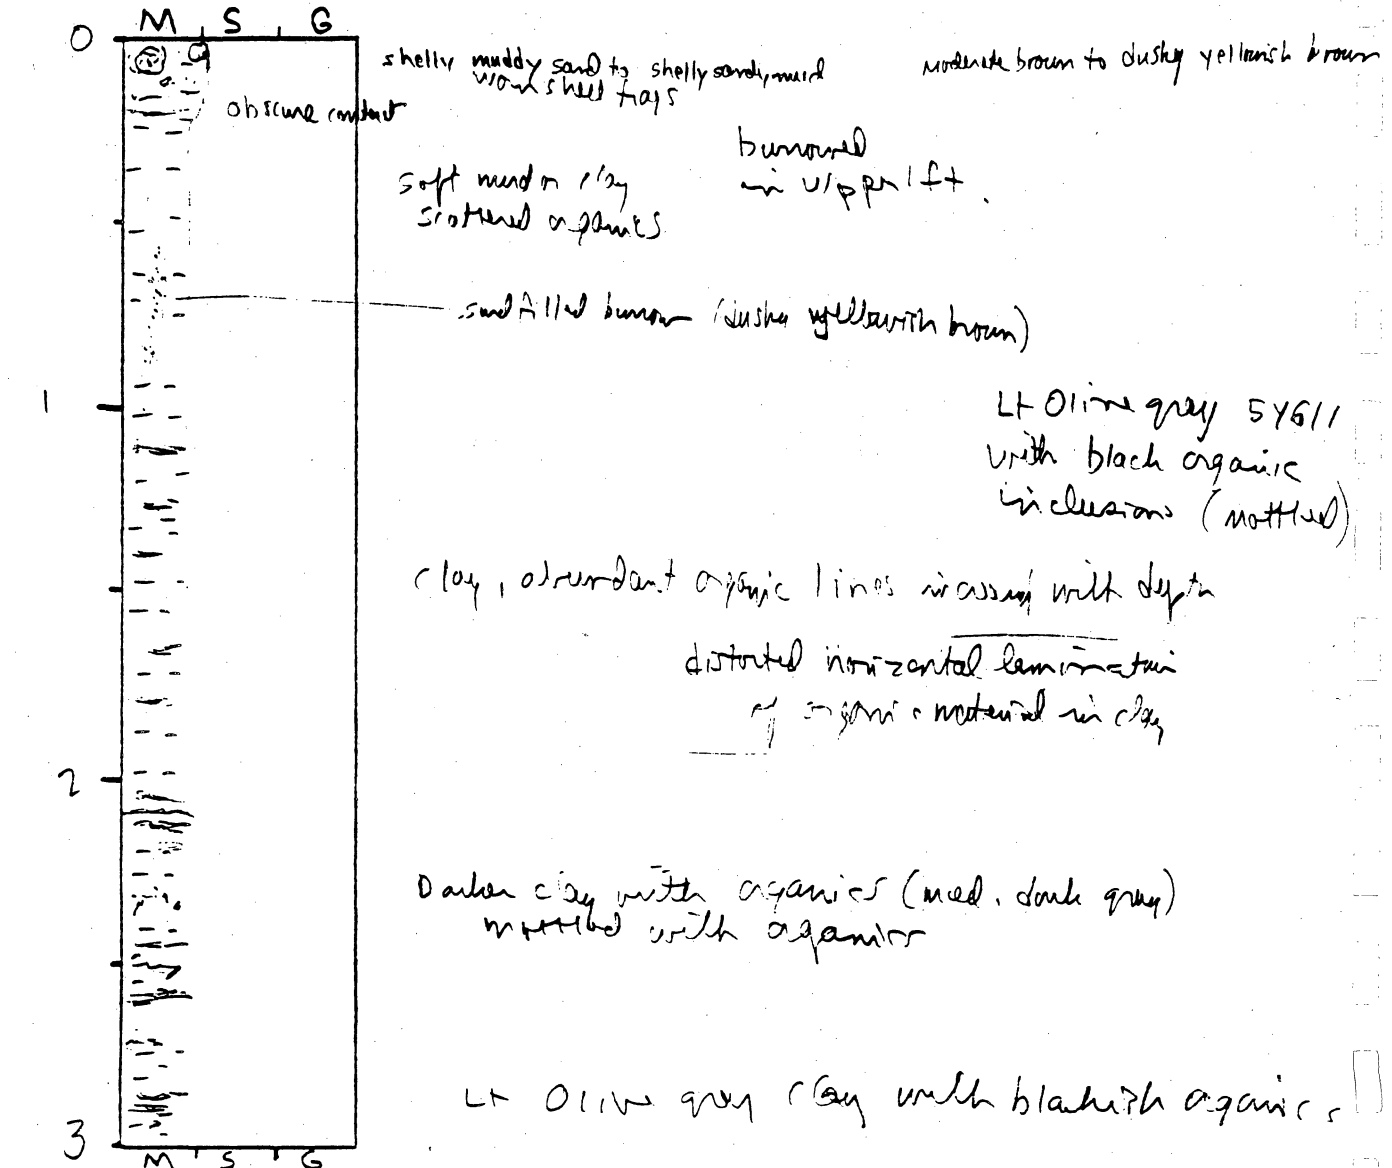 M S G
0
shelly muddy sand to shelly sandy mud
worn shell frags
moderate brown to dusky yellowish brown
obscure contact
burrowed
in upper 1 ft.
soft mud or clay
scattered organics
sand filled burrow (dusky yellowish brown)
1
Lt Olive gray 5Y6/1
with black organic
inclusions (mottled)
clay, abundant organic lines increasing with depth
distorted horizontal lamination
of organic material in clay
2
Darker clay with organics (med. dark gray)
mottled with organics
Lt Olive gray clay with blackish organics
3
M S G